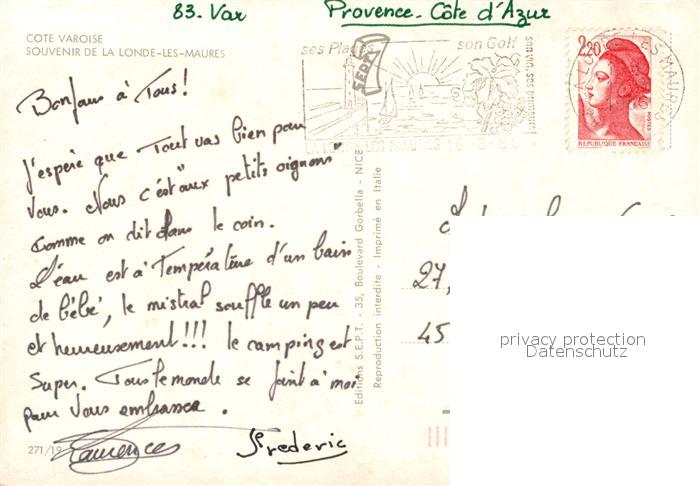 83. Var
Provence. Côte d'Azur
COTE VAROISE
SOUVENIR DE LA LONDE-LES-MAURES
ses Plages
son Golf
SEPT
2,20
POSTES
REPUBLIQUE FRANÇAISE
LA LONDE LES MAURES
Bonjour à Tous!
J'espère que Tout vas bien pour
Vous. Nous c'est "aux petits oignons"
Comme on dit dans le coin.
L'eau est à Température d'un bain
de bébé, le mistral souffle un peu
et heureusement!!! le camping est
Super. Tous le monde se joint à moi
pour Vous embrasser.
Laurence
Frederic
271/19
Editions S.E.P.T. - 35, Boulevard Gorbella - NICE
Reproduction interdite - Imprimé en Italie
27,
45
privacy protection
Datenschutz